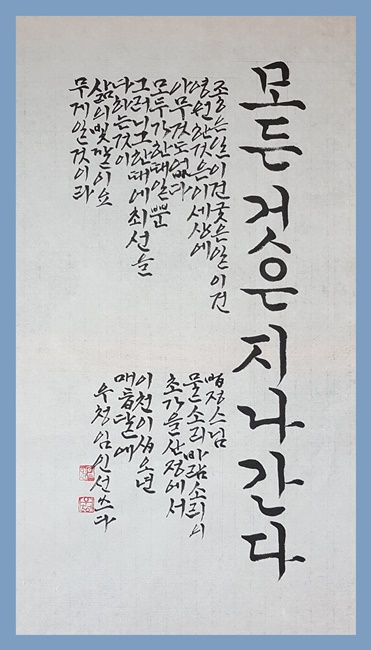 모든 것은 지나간다
좋은 일이건 궂은 일이건
영원한 것은 이 세상에
아무것도 없다
모두가 한때일 뿐
그러니 그 한때에 최선을
다하는 것이
삶의 빛깔이요
무게일 것이라
법정스님
물소리 바람소리
초가을 산정에서
이천이십오년
매듭달에
우청 임인선 쓰다